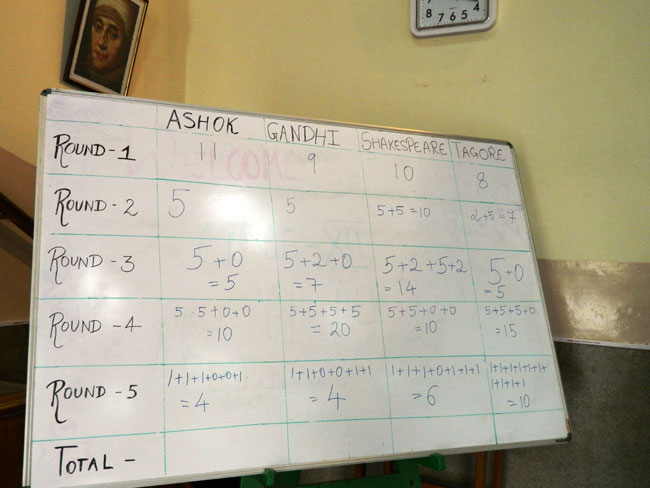 8 7 6 5 4
ASHOK GANDHI SHAKESPEARE TAGORE
ROUND-1 11 9 10 8
WELCOME
ROUND-2 5 5 5+5=10 2+5=7
ROUND-3 5+0 5+2+0 5+2+5+2 5+0
=5 =7 =14 =5
ROUND-4 5 5+0+0 5+5+5+5 5+5+0+0 5+5+5+0
=10 =20 =10 =15
ROUND-5 1+1+1+0+0+1 1+1+0+0+1+1 1+1+1+0+1+1+1 1+1+1+1+1+1+
1+1+1+1
=4 =4 =6 =10
TOTAL-